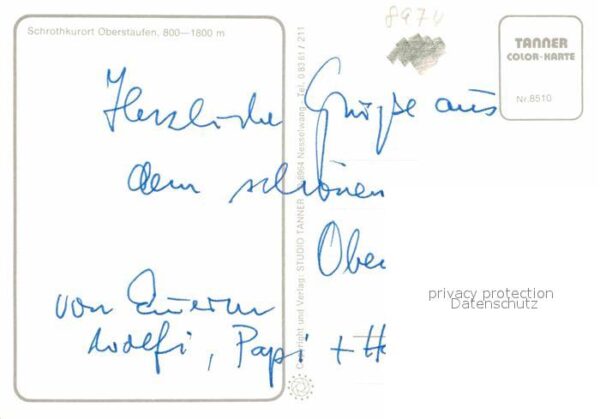 Schrothkurort Oberstaufen, 800—1800 m
8974
TANNER
COLOR-KARTE
Nr. 8510
Herzliche Grüße aus
dem schönen
Obe
von Euerm
Wolfi, Papi + H
Copyright und Verlag: STUDIO TANNER 8964 Nesselwang - Tel. 0 83 61 / 211
privacy protection
Datenschutz